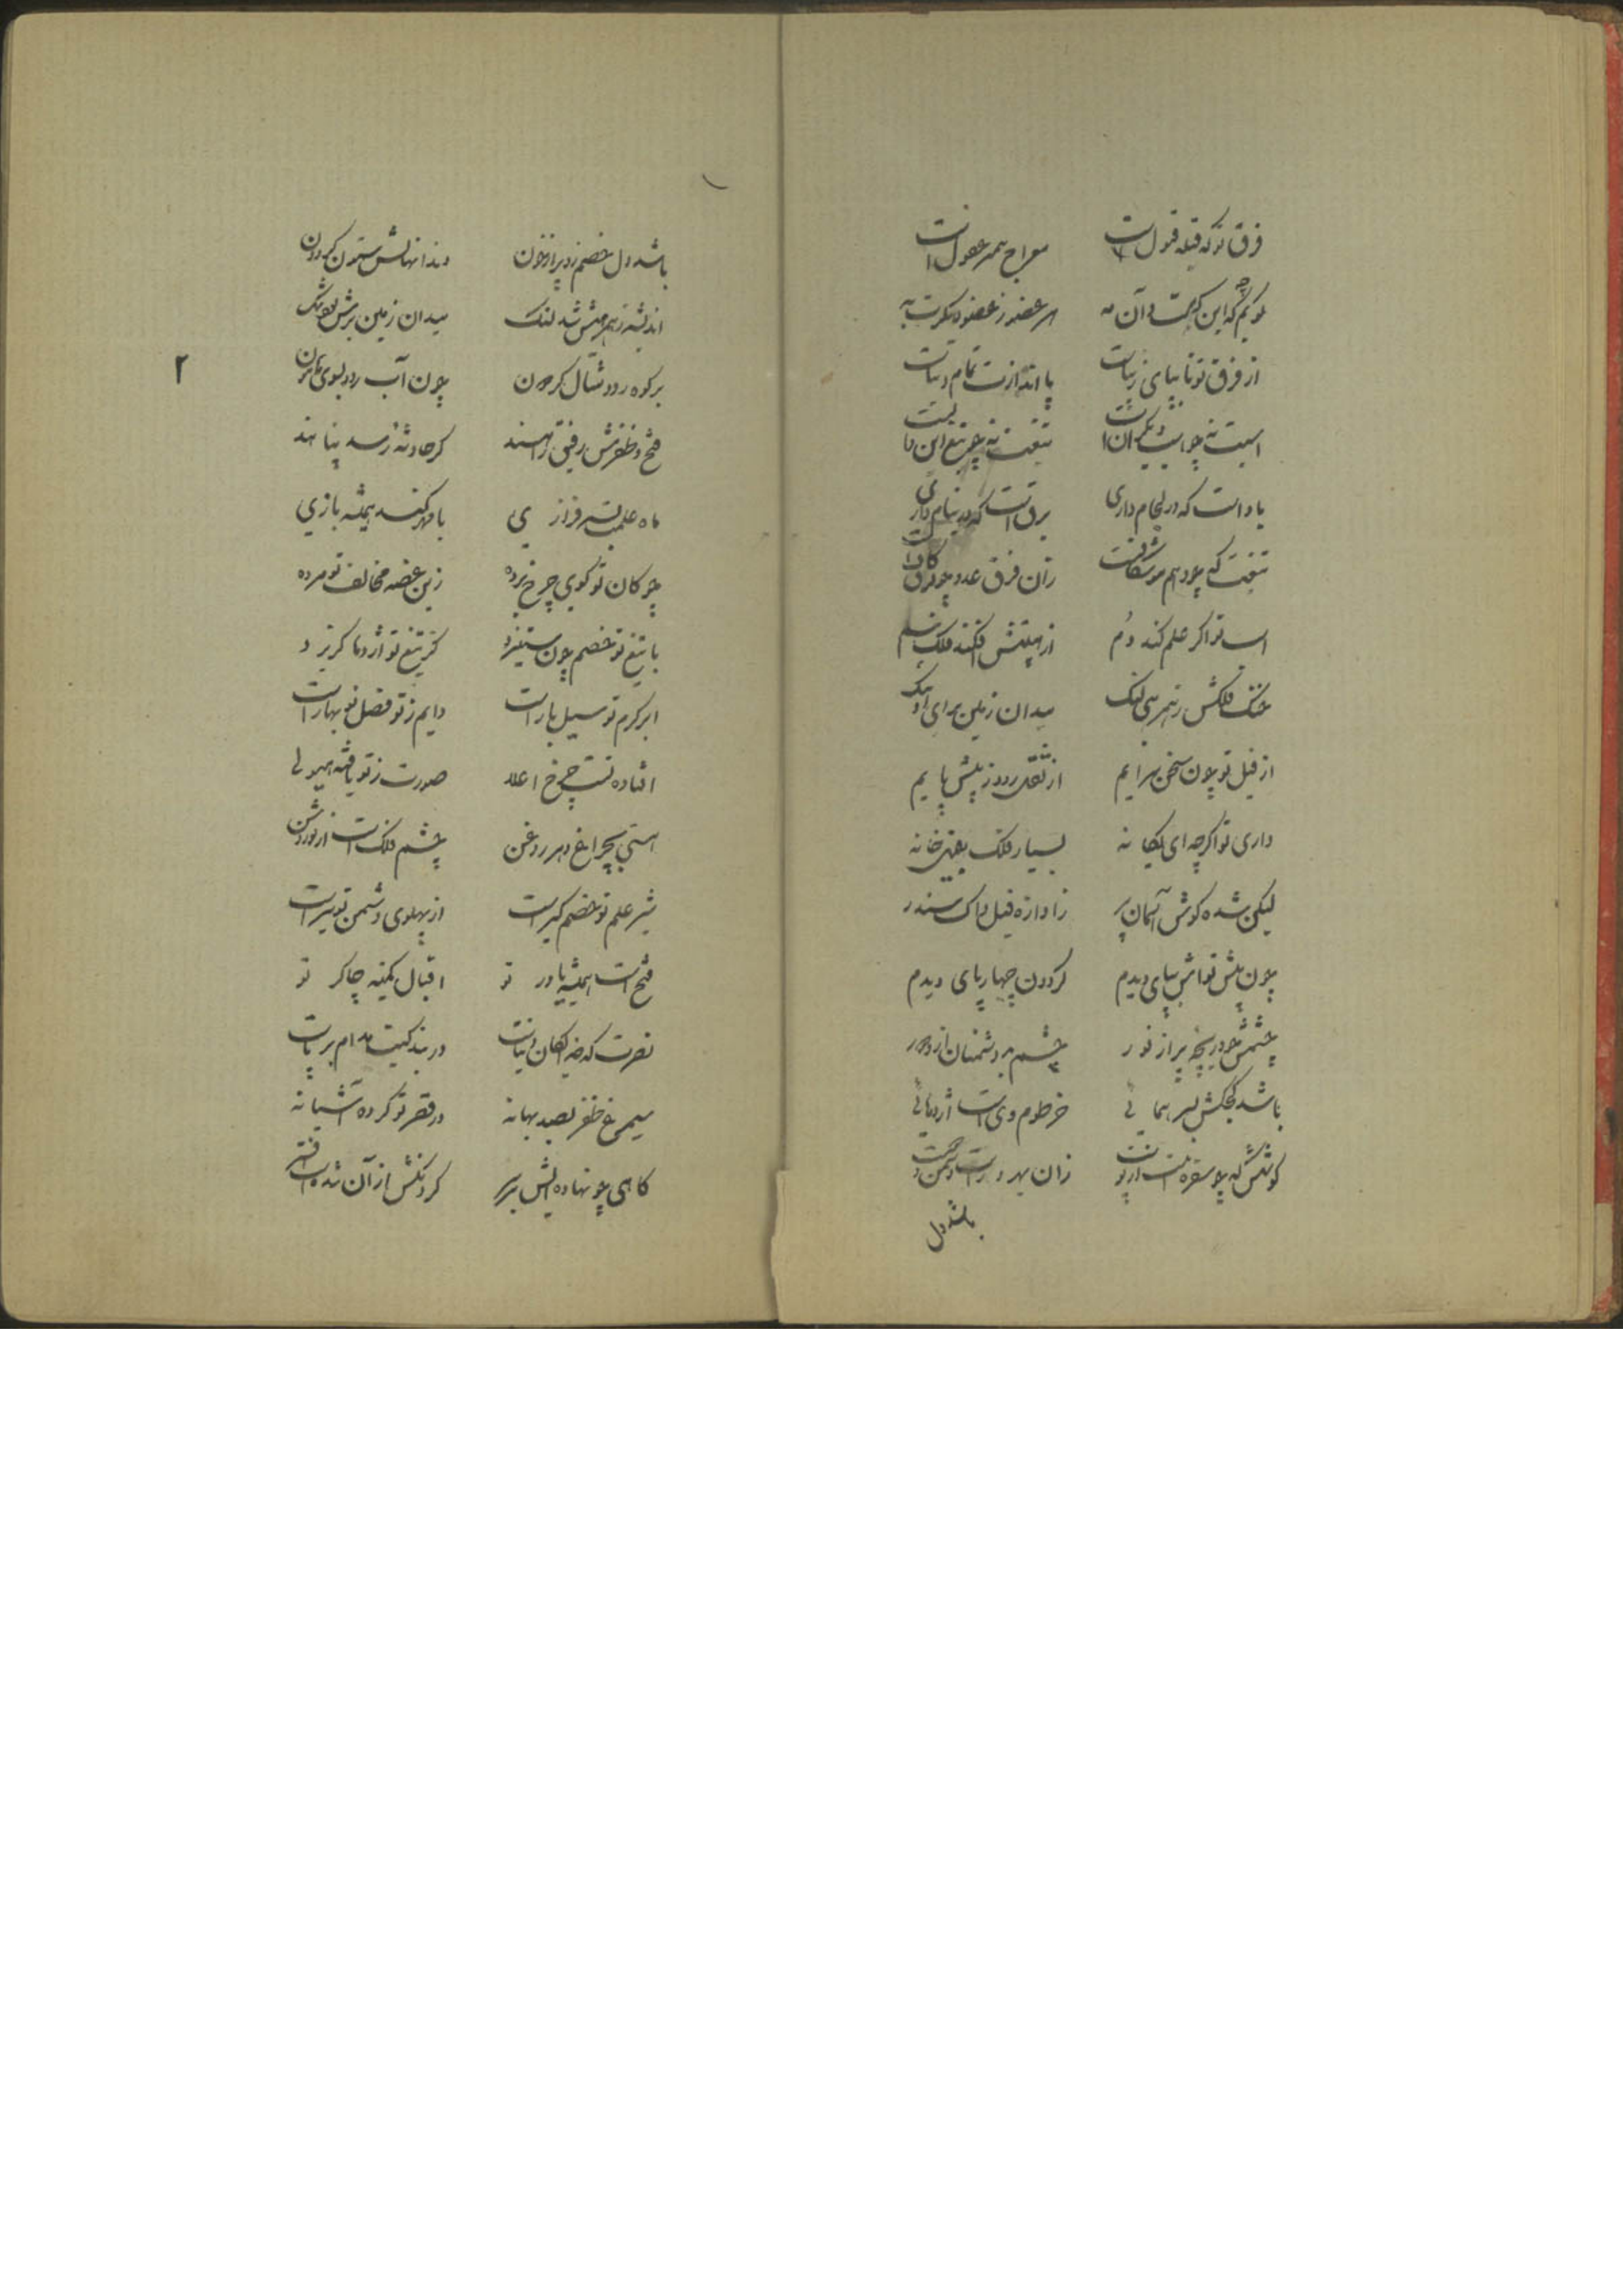 فرق تو که قبله قبول است معراج همه عقول است
گویم که این به است و آن به هر عضو ز عضو دیگرت به
از فرق تو تا بپای زیباست پا اندازت تمام دنیاست
اسبت نه چو اسب دیگرانست تیغت نه چو تیغ این و
باد است که در لجام داری برق است که در نیام داری
تیغت که بود هم موشکافت زان فرق عدو چو فرق
اسب تو اگر علم کند دُم از هیبتش افکند فلک سم
خنگ فلکش ز همرهی لنگ میدان زمین برای او تنگ
از فیل تو چون سخن سرایم از ثقل رود ز پیش پایم
داری تو اگرچه ای یگانه بسیار فلک بفیل خانه
لیکن شده گوش آسمان پر ز اوازه فیل پاک سندر
چون پیش تواش بپای دیدم گردون چهارپای دیدم
چشمش چو دریچه پر از نور چشم بد دشمنان ازو دور
باشد کجکش بسر همائی خرطوم وی است اژدهائی
گوشش که چو سفره است از پوست زان بهره ور است دشمن و دوست
باشد دل
باشد دل خصم زو پر از خون دندانهایش ستون گردون
اندیشه ز همرهیش شد لنگ میدان زمین برش بود تنگ
بر کوه رود شال گردون چون آب رود بسوی هامون
فتح و ظفرش رفیق راهند گر حادثه رسد پناهند
ماه علمت بسرفرازی با مهر کند همیشه بازی
چوگان تو گوی چرخ برده زین غصه مخالف تو مرده
با تیغ تو خصم چون ستیزد کز تیغ تو اژدها گریزد
ابر کرم تو سیل بار است دایم ز تو فصل نوبهار است
افتاده تست چرخ اعلا صورت ز تو یافته هیولی
هستی بچراغ دهر روغن چشم فلک است از تو روشن
شیر علم تو خصم گیر است از پهلوی دشمن تو سیر است
فتح است همیشه یاور تو اقبال کمینه چاکر تو
نصرت که خدایگان دنیاست در بندگیت مدام بر پاست
سیمرغ ظفر بصد بهانه در قصر تو کرده آشیانه
۲
گاهی چو نهاده ایش بر سر گردنکش از آن شده است افسر